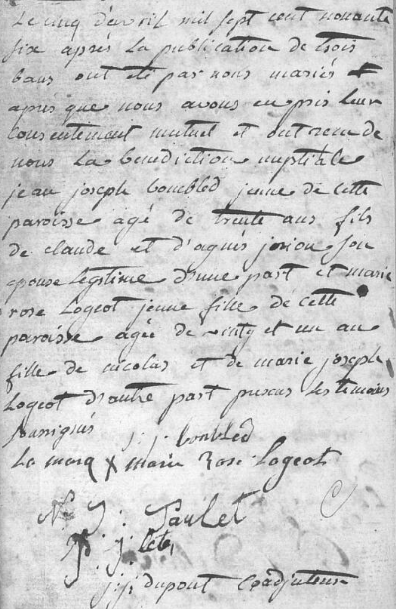 Le cinq d'avril mil sept cent nonante
six aprés la publication de trois
bans ont été par nous mariés et
aprés que nous avons eu pris leur
consentement mutuel et ont recu de
nous la benediction nuptiale
jean joseph boubled jeune de cette
paroisse agé de trente ans fils
de claude et d'agnés jorion son
epouse legitime d'une part et marie
rose Logeot jeune fille de cette
paroisse agée de vingt et un an
fille de nicolas et de marie joseph
Logeot d'autre part presens les temoins
soussignés
j: j: boubled
La marq X marie Rose Logeot
N: J: Paulet
P: j:
j: j: dupont Coadjuteur